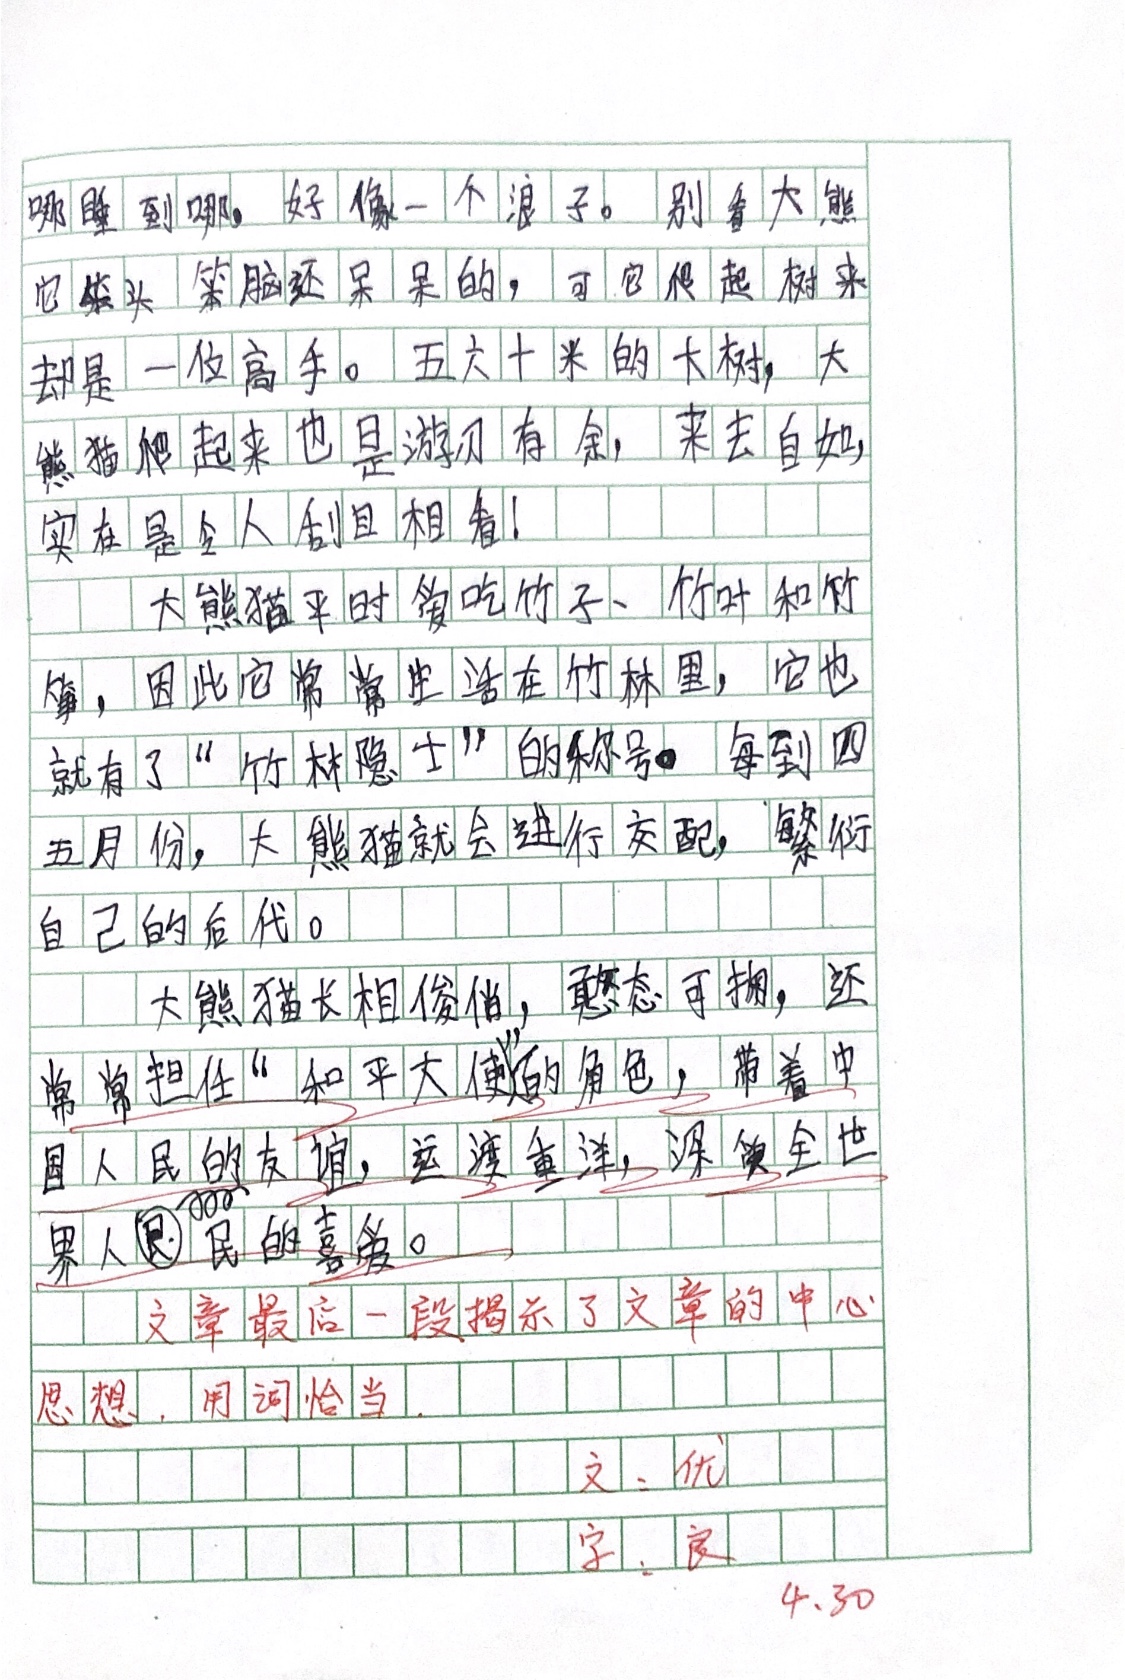 哪睡到哪。好像一个浪子。别看大熊
它笨头笨脑还呆呆的，可它爬起树来
却是一位高手。五六十米的大树，大
熊猫爬起来也是游刃有余，来去自如，
实在是令人刮目相看！
大熊猫平时爱吃竹子、竹叶和竹
笋，因此它常常生活在竹林里，它也
就有了“竹林隐士”的称号。每到四
五月份，大熊猫就会进行交配，繁衍
自己的后代。
大熊猫长相俊俏，憨态可掬，还
常常担任“和平大使”的角色，带着中
国人民的友谊，远渡重洋，深受全世
界人民的喜爱。
文章最后一段揭示了文章的中心
思想．用词恰当．
文：优
字：良
4.30